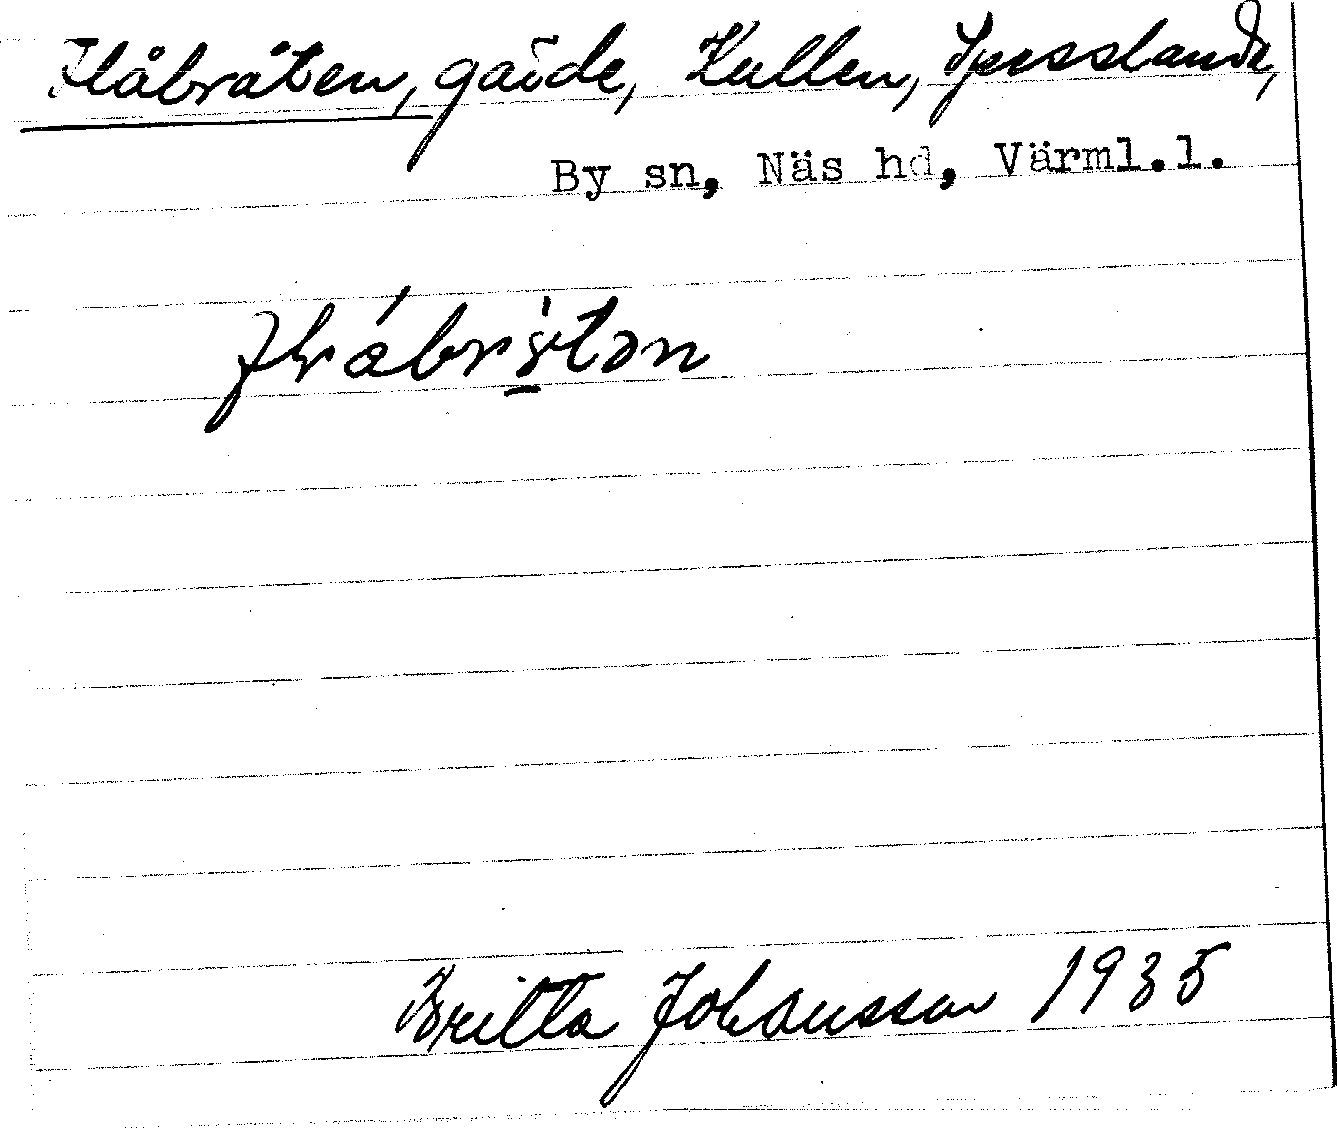 Flåbråten, gärde, Kullen, Spässlanda,
By sn, Näs hd, Värml.l.
Britta Johansson 1935